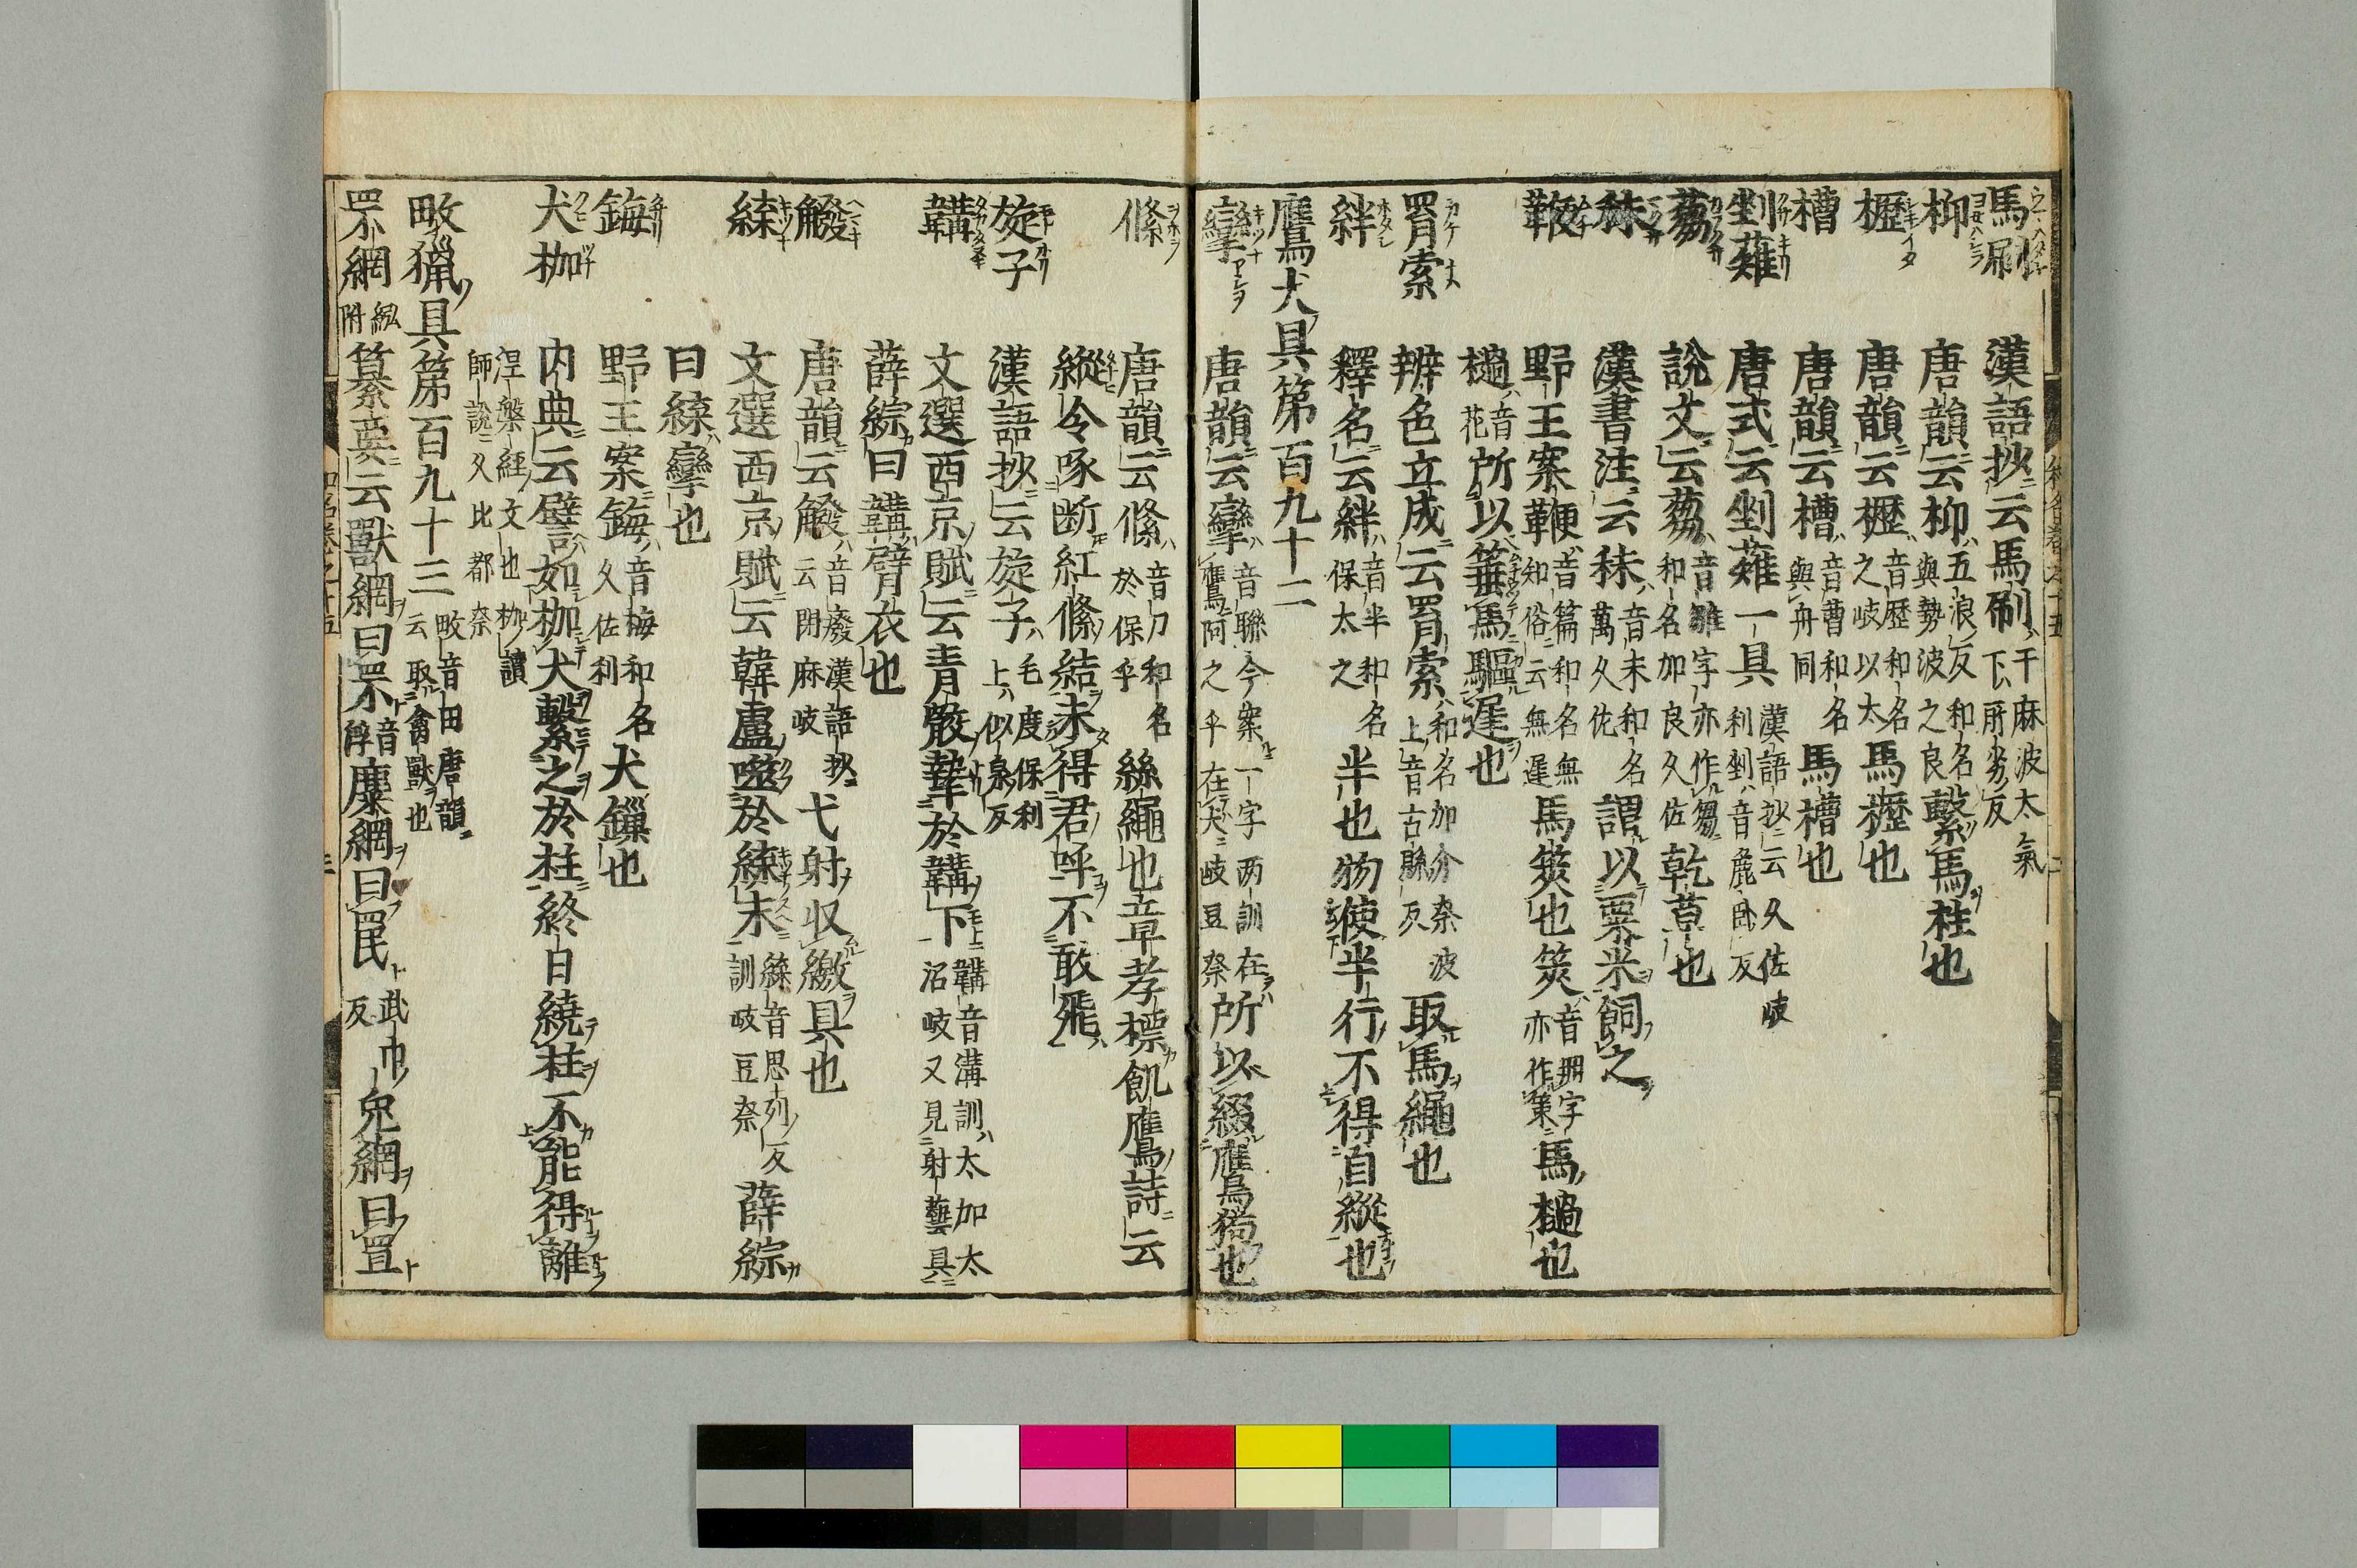 馬刷 漢語抄云馬刷 于麻波太氣下所劣反
枊 唐韻云枊 五浪反和名与勢波之良 繫馬柱也
櫪 唐韻云櫪 音歴和名之岐以太 馬櫪也
槽 唐韻云槽 音曹和名與舟同 馬槽也
剉薙 唐式云剉薙一具 漢語抄云久佐岐利剉音麁臥反
蒭 說文云蒭 音雛字亦作芻和名加良久佐 乾草也
秣 漢書注云秣 音末和名萬久佐 謂以粟米飼之
鞭 野王案鞭 音篇和名無知俗云無遲 馬筴也筴 音冊字亦作策 馬檛也
檛 音花 所以箠馬驅遲也
罥索 辨色立成云罥索 和名加介奈波上音古縣反 取馬繩也
絆 釋名云絆 音半和名保太之 半也物使半行不得自縱也
攣 唐韻云攣 音聯今案一字兩訓在鷹阿之乎在犬岐豆奈 所以綴鷹狗也
鷹犬具第百九十二
絛 唐韻云絛 音刀和名於保乎 絲繩也章孝標飢鷹詩云
縱令啄断紅絛結未得君呼不敢飛
旋子 漢語抄云旋子 毛度保利上似泉反
韝 文選西京賦云青骹摯於韝下 韝音溝訓太加太沼岐又見射藝具
薛綜曰韝臂衣也
䌫 唐韻云 音廢漢語抄云閇麻岐 弋射収繳具也
紲 文選西京賦云韓盧噬於緤末 緤音思列反訓岐豆奈 薛綜
曰緤攣也
鋂 野王案鋂 音梅和名久佐利 犬鏁也
犬枷 内典云譬如枷犬繫之於柱終日繞柱不能得離
涅槃經文也枷讀師說久比都奈
畋獵具第百九十三 畋音田唐韻云取禽獸也
罘網 紭附 纂要云獸網曰罘 音浮 麋網曰罠 武巾反 兎網曰罝